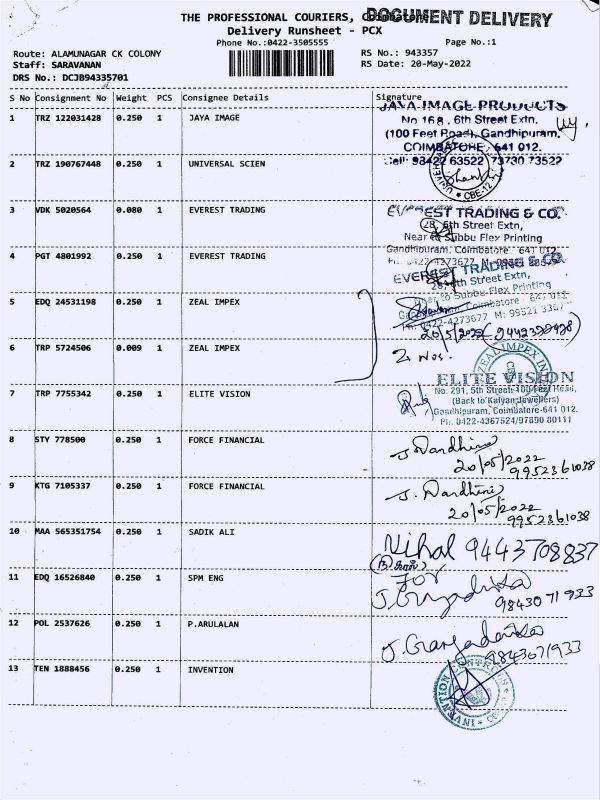 THE PROFESSIONAL COURIERS, Coimbatore
DOCUMENT DELIVERY
Delivery Runsheet - PCX
Phone No.:0422-3505555
Page No.:1
Route: ALAMUNAGAR CK COLONY
RS No.: 943357
Staff: SARAVANAN
RS Date: 20-May-2022
DRS No.: DCJB94335701
S No Consignment No Weight PCS Consignee Details Signature
1 TRZ 122031428 0.250 1 JAYA IMAGE
JAYA IMAGE PRODUCTS
No 168, 6th Street Extn.
(100 Feet Road), Gandhipuram,
COIMBATORE, 641 012.
Cell: 98422 63522 73730 73522
2 TRZ 190767448 0.250 1 UNIVERSAL SCIEN
CBE-12
3 VDK 5020564 0.080 1 EVEREST TRADING
EVEREST TRADING & CO.
28, 6th Street Extn,
Near to Subbu Flex Printing
Gandhipuram, Coimbatore 641 012.
4 PGT 4801992 0.250 1 EVEREST TRADING
EVEREST TRADING & CO
28, 6th Street Extn,
Near to Subbu Flex Printing
5 EDQ 24531198 0.250 1 ZEAL IMPEX
20/5/2022
6 TRP 5724506 0.009 1 ZEAL IMPEX
2 Nos.
ZEAL IMPEX
7 TRP 7755342 0.250 1 ELITE VISION
ELITE VISION
No. 291, 5th Street, 100 Feet Road,
(Back to Kalyan Jewellers)
Gandhipuram, Coimbatore-641 012.
Ph: 0422-4367524/97890 80111
8 STY 778500 0.250 1 FORCE FINANCIAL
20/05/2022
9952361038
9 KTG 7105337 0.250 1 FORCE FINANCIAL
20/05/2022
9952361038
10 MAA 565351754 0.250 1 SADIK ALI
Nihal 9443708837
11 EDQ 16526840 0.250 1 SPM ENG
For
9843071933
12 POL 2537626 0.250 1 P.ARULALAN
9843071933
13 TEN 1888456 0.250 1 INVENTION
INVENTION CONTROLS